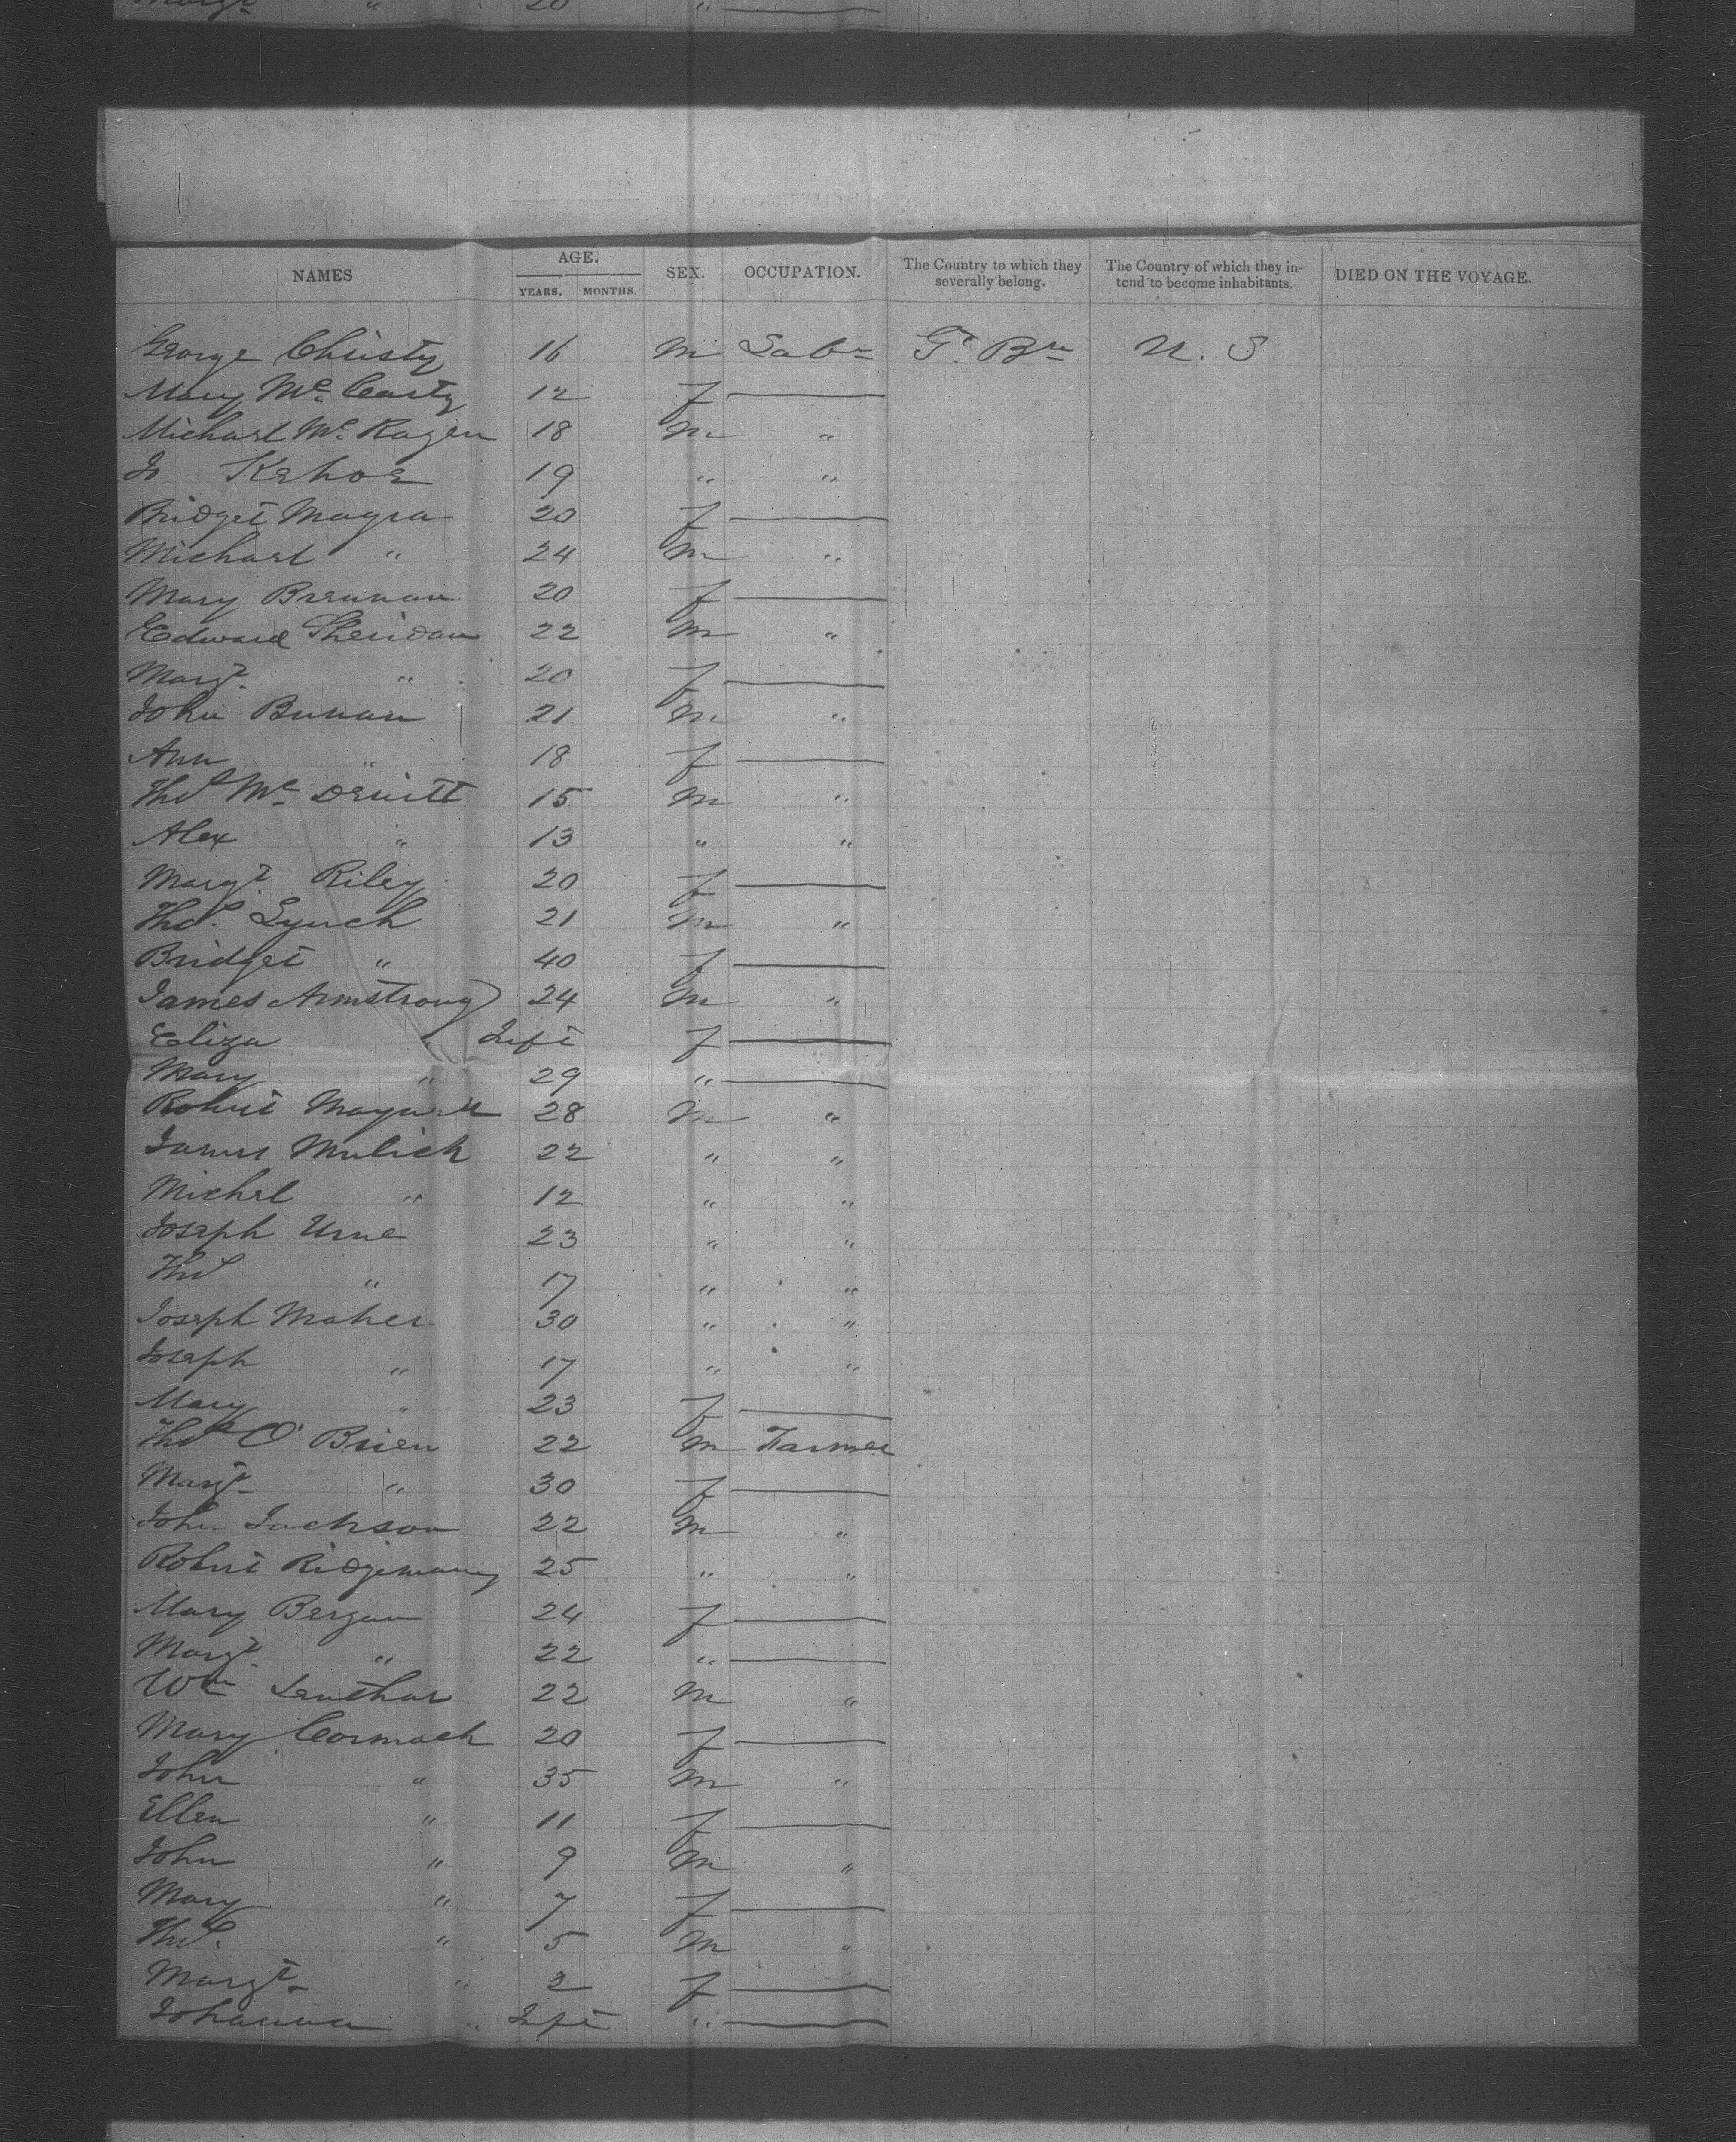 Margt " 20 "
NAMES AGE. YEARS. MONTHS. SEX. OCCUPATION. The Country to which they severally belong. The Country of which they intend to become inhabitants. DIED ON THE VOYAGE.
George Christy 16 m Labr Gt Brn U. S
Mary Mc Carty 12 f
Michael Mc Kagen 18 m "
Jo Kehoe 19 " "
Bridget Magra 20 f
Michael " 24 m "
Mary Brennan 20 f
Edward Sheridan 22 m "
Margt " 20 f
John Bunan 21 m "
Ann " 18 f
Thos Mc Devitt 15 m "
Alex " 13 " "
Margt. Riley 20 f
Thos. Lynch 21 m "
Bridget " 40 f
James Armstrong 24 m "
Eliza " Inft f
Mary " 29 "
Robert 28 m "
James Mulick 22 " "
Michel " 12 " "
Joseph 23 " "
Thos " 17 " "
Joseph Maher 30 " "
Joseph " 17 " "
Mary " 23 f
Thos O'Brien 22 m Farmer
Margt " 30 f
John Jackson 22 m "
Robert Ridgeway 25 " "
Mary Bergan 24 f
Margt " 22 "
Wm 22 m "
Mary Cormack 20 f
John " 35 m "
Ellen " 11 f
John " 9 m "
Mary " 7 f
Thos. " 5 m "
Margt " 3 f
Johanna " Inft "